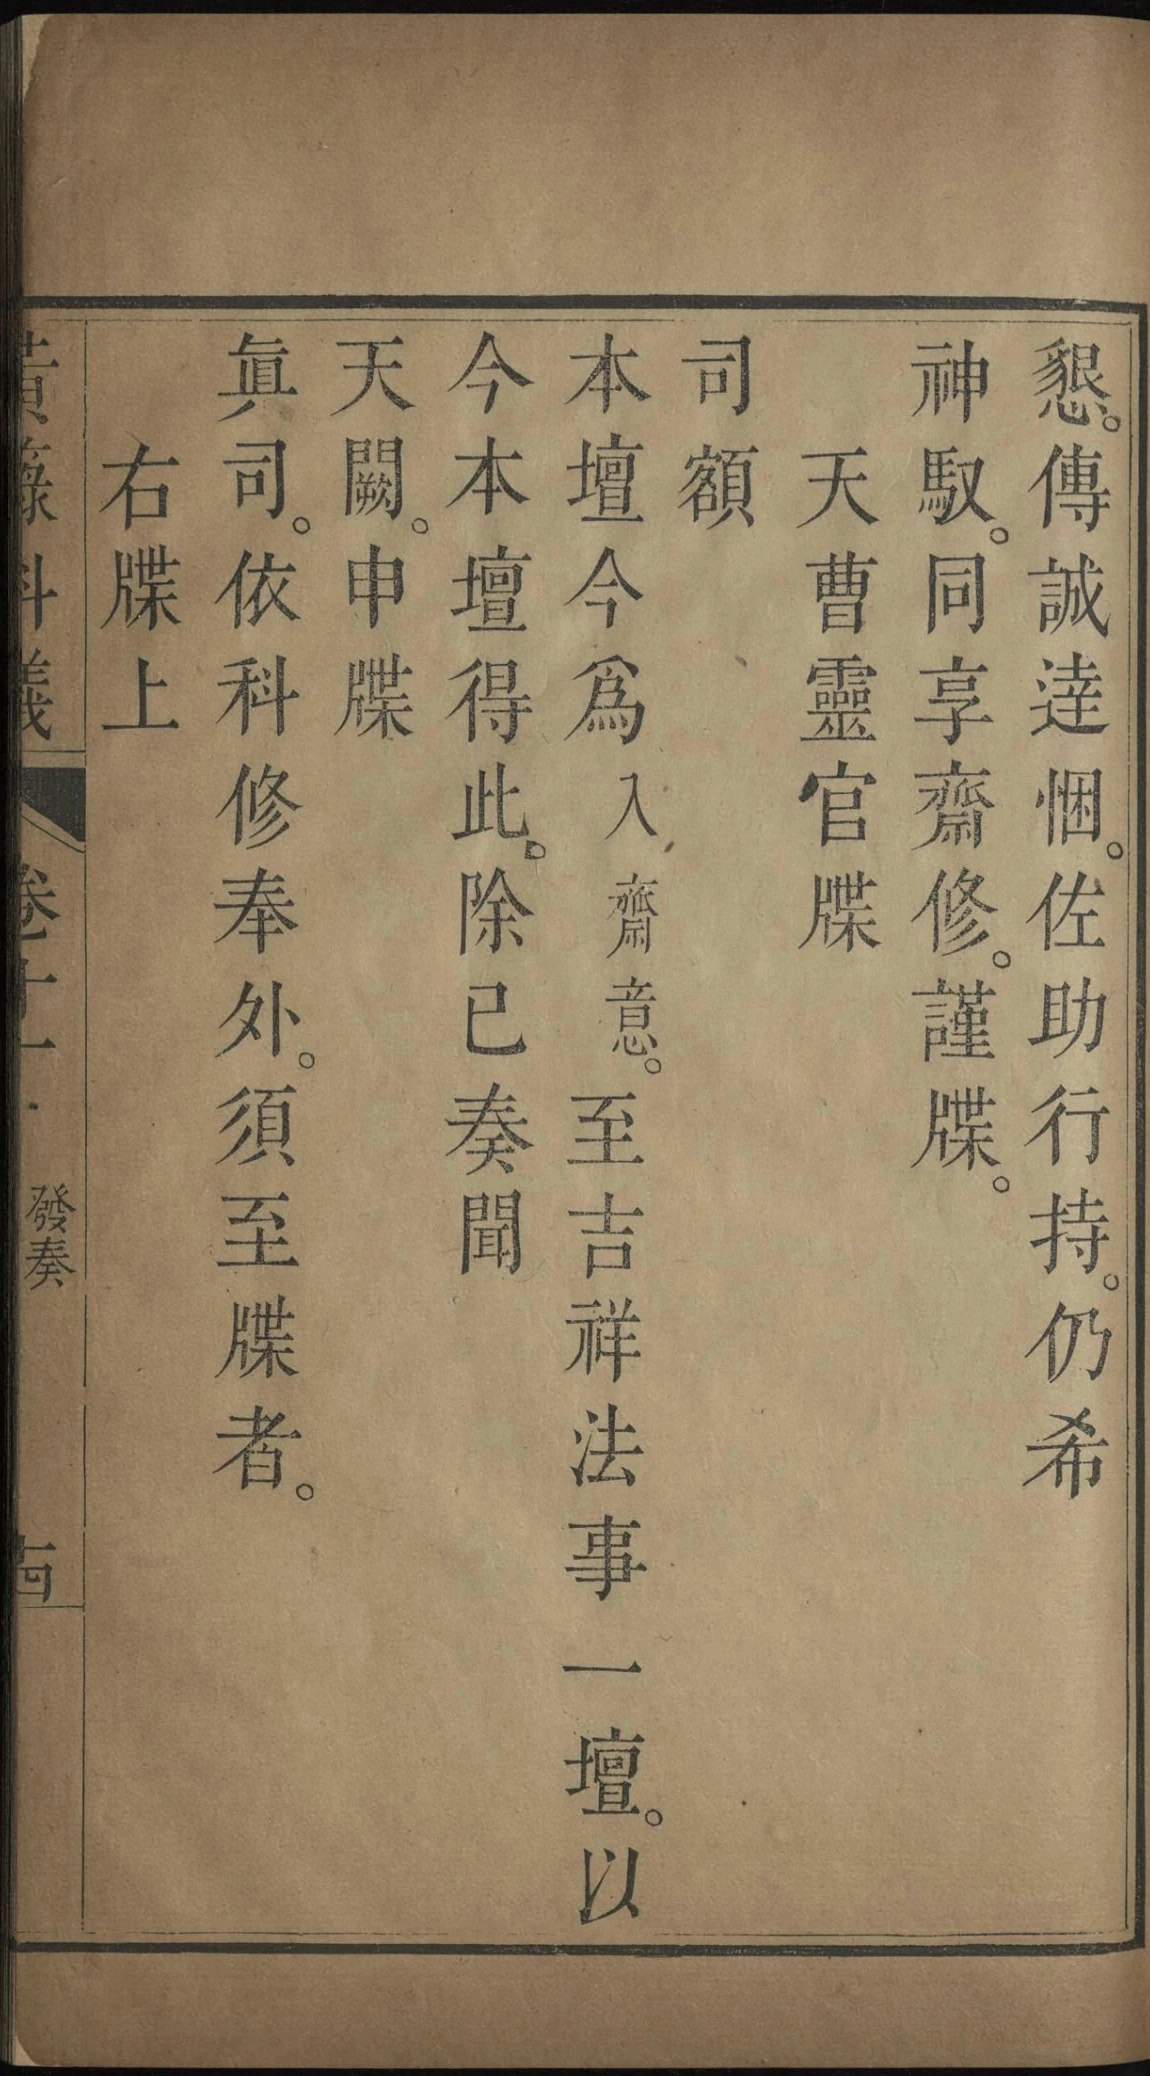 懇。傳誠達悃。佐助行持。仍希
神馭。同享齋修。謹牒。
天曹靈官牒
司額
本壇今爲入齋意。至吉祥法事一壇。以
今本壇得此。除已奏聞
天闕。申牒
眞司。依科修奉外。須至牒者。
右牒上
黃籙科儀 卷十一 發奏 古